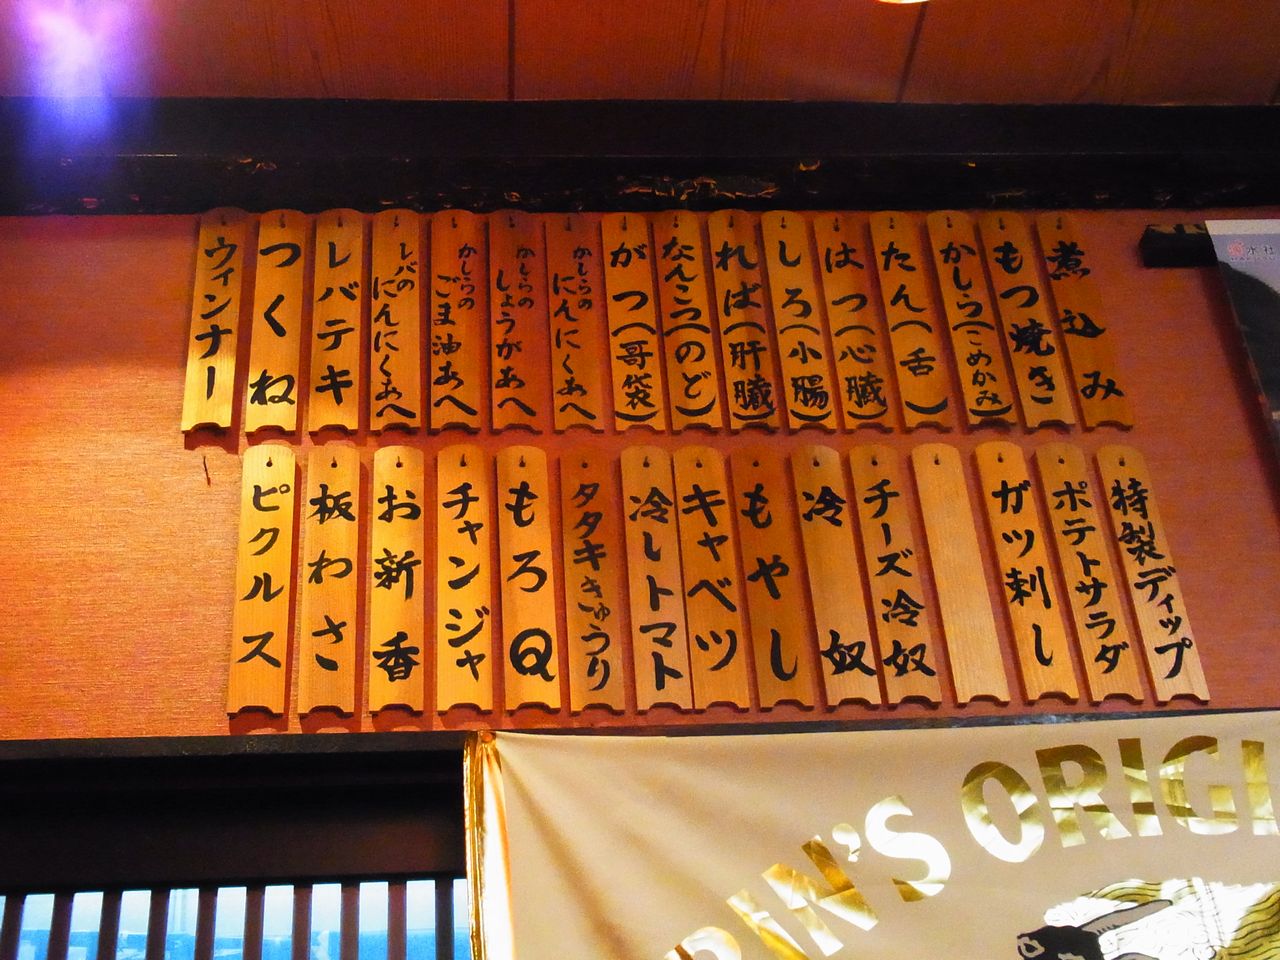 煮込み
もつ焼き
かしら(こめかみ)
たん(舌)
はつ(心臓)
しろ(小腸)
ればー(肝臓)
なんこつ(のど)
がつ(胃袋)
かしらのにんにくあへ
かしらのしょうがあへ
かしらのごま油あへ
レバのにんにくあへ
レバテキ
つくね
ウィンナー
特製ディップ
ポテトサラダ
ガツ刺し
チーズ冷奴
冷奴
もやし
キャベツ
冷しトマト
タタキきゅうり
もろQ
チャンジャ
お新香
板わさ
ピクルス
IN'S ORIGI